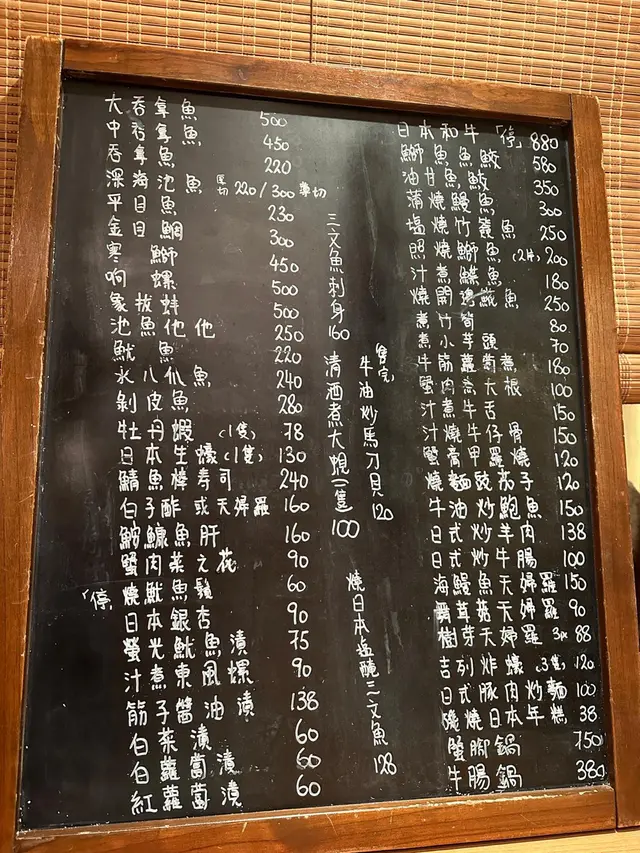 大吞拿魚 500
中吞拿魚 450
吞拿魚 220
深海池魚 切 220/300 切
平目魚 230
金目鯛 300
寒鰤 450
响螺 500
象拔蚌 500
池魚他他 250
魷魚 220
水八爪魚 240
剝皮魚 280
牡丹蝦(1隻) 78
日本生蠔(1隻) 130
鯖魚棒壽司 240
白子酢或天婦羅 160
鮟鱇魚肝 160
蟹肉菜之花 90
「停」燒魷魚鬚 60
日本銀杏 90
螢光魷魚漬 75
汁煮東風螺 90
筋子醬油漬 138
白菜漬 60
白蘿蔔漬 60
紅蘿蔔漬 60
三文魚刺身 160
清酒煮大蜆(隻) 100
(售完) 牛油炒馬刀貝 120
燒日本塩醃三文魚 128
日本和牛「停」 880
鰤魚魚鮫 580
油甘魚鮫 350
蒲燒鰻魚 300
塩燒竹籤魚 250
照燒鰤魚(2件) 200
汁煮鰈魚 180
燒開邊魚 250
煮竹筍 80
煮小芋頭 70
牛筋蘿蔔煮 180
蟹肉大根 100
汁煮牛舌 150
汁燒牛仔骨 150
蟹膏甲羅燒 120
燒麵豉茄子 120
牛油炒鮑魚 150
日式炒羊肉 138
日式炒牛腸 100
海鰻魚天婦羅 150
舞茸菇天婦羅 90
樹芽天婦羅 3片 88
吉列炸蠔(3隻) 120
日式豚肉炒麵 100
燒日本年糕 38
蟹腳鍋 750
牛腸鍋 380